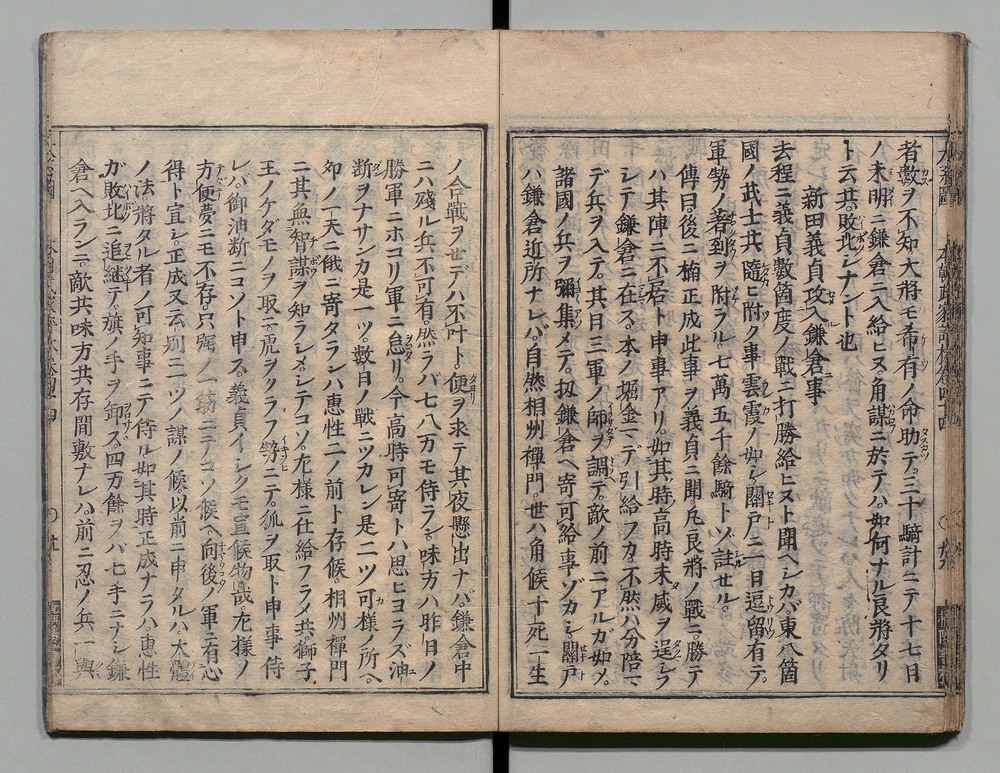 者數ヲ不知大將モ希有ノ命助テ三十騎計ニテ十七日
ノ未明ニ鎌倉ニ入給ヒヌ角謀ニ於テハ如何ナル良將タリ
ト云共敗北シナント也
新田義貞攻入鎌倉事
去程ニ義貞數箇度ノ戰ニ打勝給ヒヌト聞ヘシカバ東八箇
國ノ武士共隨ヒ附ク事雲霞ノ如シ關戸ニ一日逗留有テ
軍勢ノ著到ヲ附ラル七萬五千餘騎トゾ註セル
傳曰後ニ楠正成此事ヲ義貞ニ聞凡良將ノ戰ニ勝テ
ハ其陣ニ不居ト申事アリ如其時高時未威ヲ逞シフ
シテ鎌倉ニ在ス本ノ堀金ニデ引給フカ不然ハ分陪ニ
デ兵ヲ入テ其日三軍ノ師ヲ調テ敵ノ前ニアルガ如メ
諸國ノ兵ヲ彌集メテ扨鎌倉ヘ寄可給事ゾカシ關戸
ハ鎌倉近所ナレバ自然相州禪門世ハ角候十死一生
ノ合戰ヲセデハ不叶ト便ヲ求テ其夜懸出ナバ鎌倉中
ニ八殘ル兵不可有然ラバ七八万モ侍ラン味方ハ昨日ノ
勝軍ニホコリ軍ニ怠リ今高時可寄トハ思ヒヨラズ油
断ヲナサンカ是一ツ數日ノ戰ニツカレン是二ツ可様ノ所ヘ
卯ノ一天ニ俄ニ寄タランハ惠性ニノ前ト存候相州禪門
ニ其無智謀ヲ知ラレメシテコソ左様ニ仕給フラメ共獅子
王ノケダモノヲ取ニ虎ヲクラフ勢ニテ狐ヲ取ト申事侍
レバ御油断ニコソト申ス義貞イシクモ宣候物哉左様ノ
方便夢ニモ不存只窮ノ一筋ニテコソ候ヘ向後ノ軍ニ有心
得ト宣シ正成又云別ニ二ツノ謀ノ候以前ニ申タルハ大體
ノ法將タル者ノ可知事ニテ侍ル如其時正成ナラハ惠性
ガ敗北ニ追継テ旗ノ手ヲ卸ス四万餘ヲバ七手ニナシ鎌
倉ヘ入ランニ敵共味方共存間敷ナレハ前ニ忍ノ兵一與